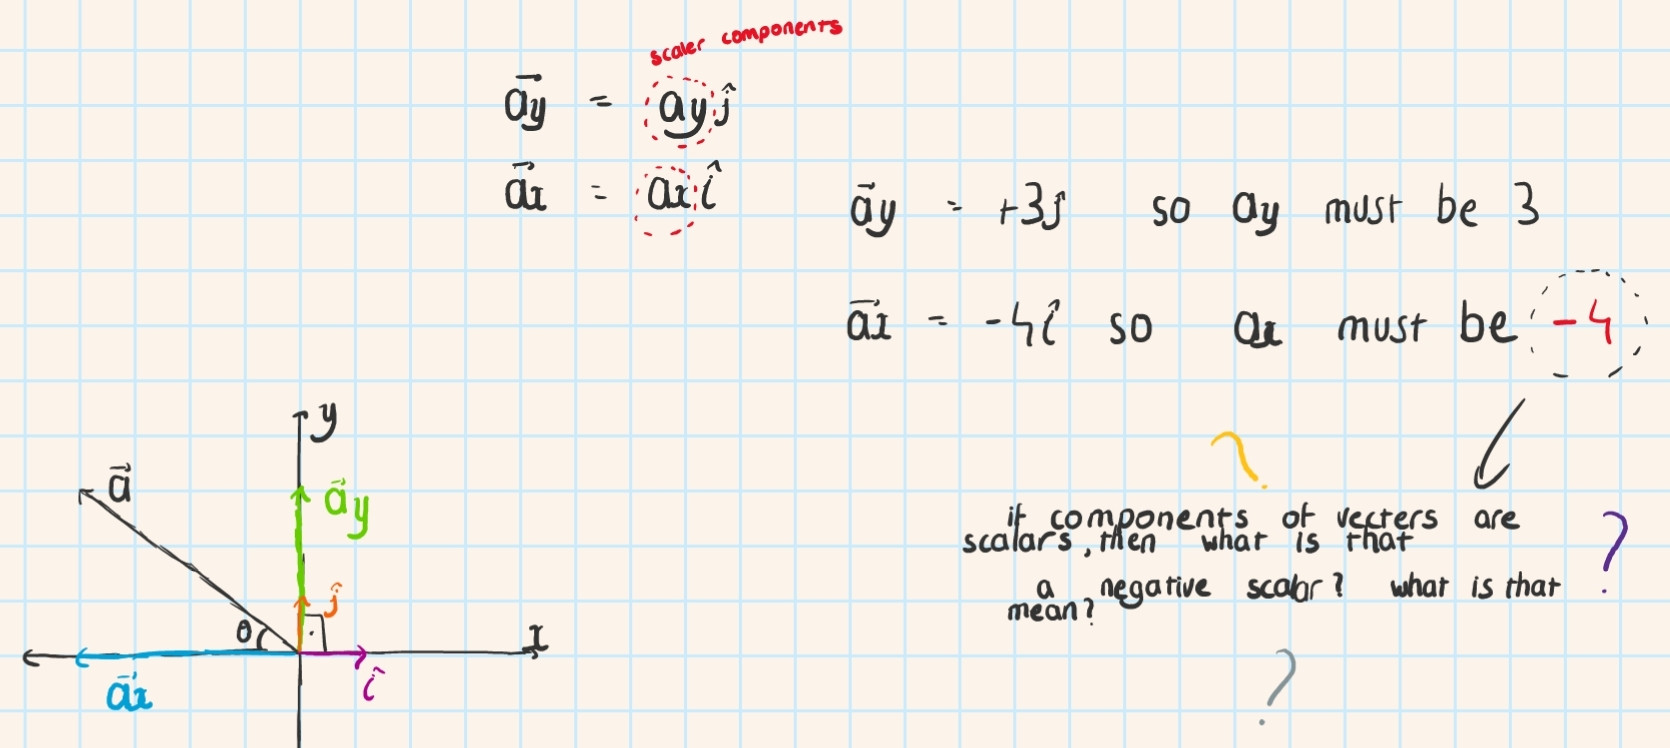 scaler components
a⃗y = ay ĵ
a⃗x = ax î
a⃗y = +3ĵ so ay must be 3
a⃗x = -4î so ax must be -4
y
a⃗
a⃗y
if components of vecters are
scalars, then what is that
?
a negative scalar? what is that
mean?
ĵ
θ
x
a⃗x
î
?
?